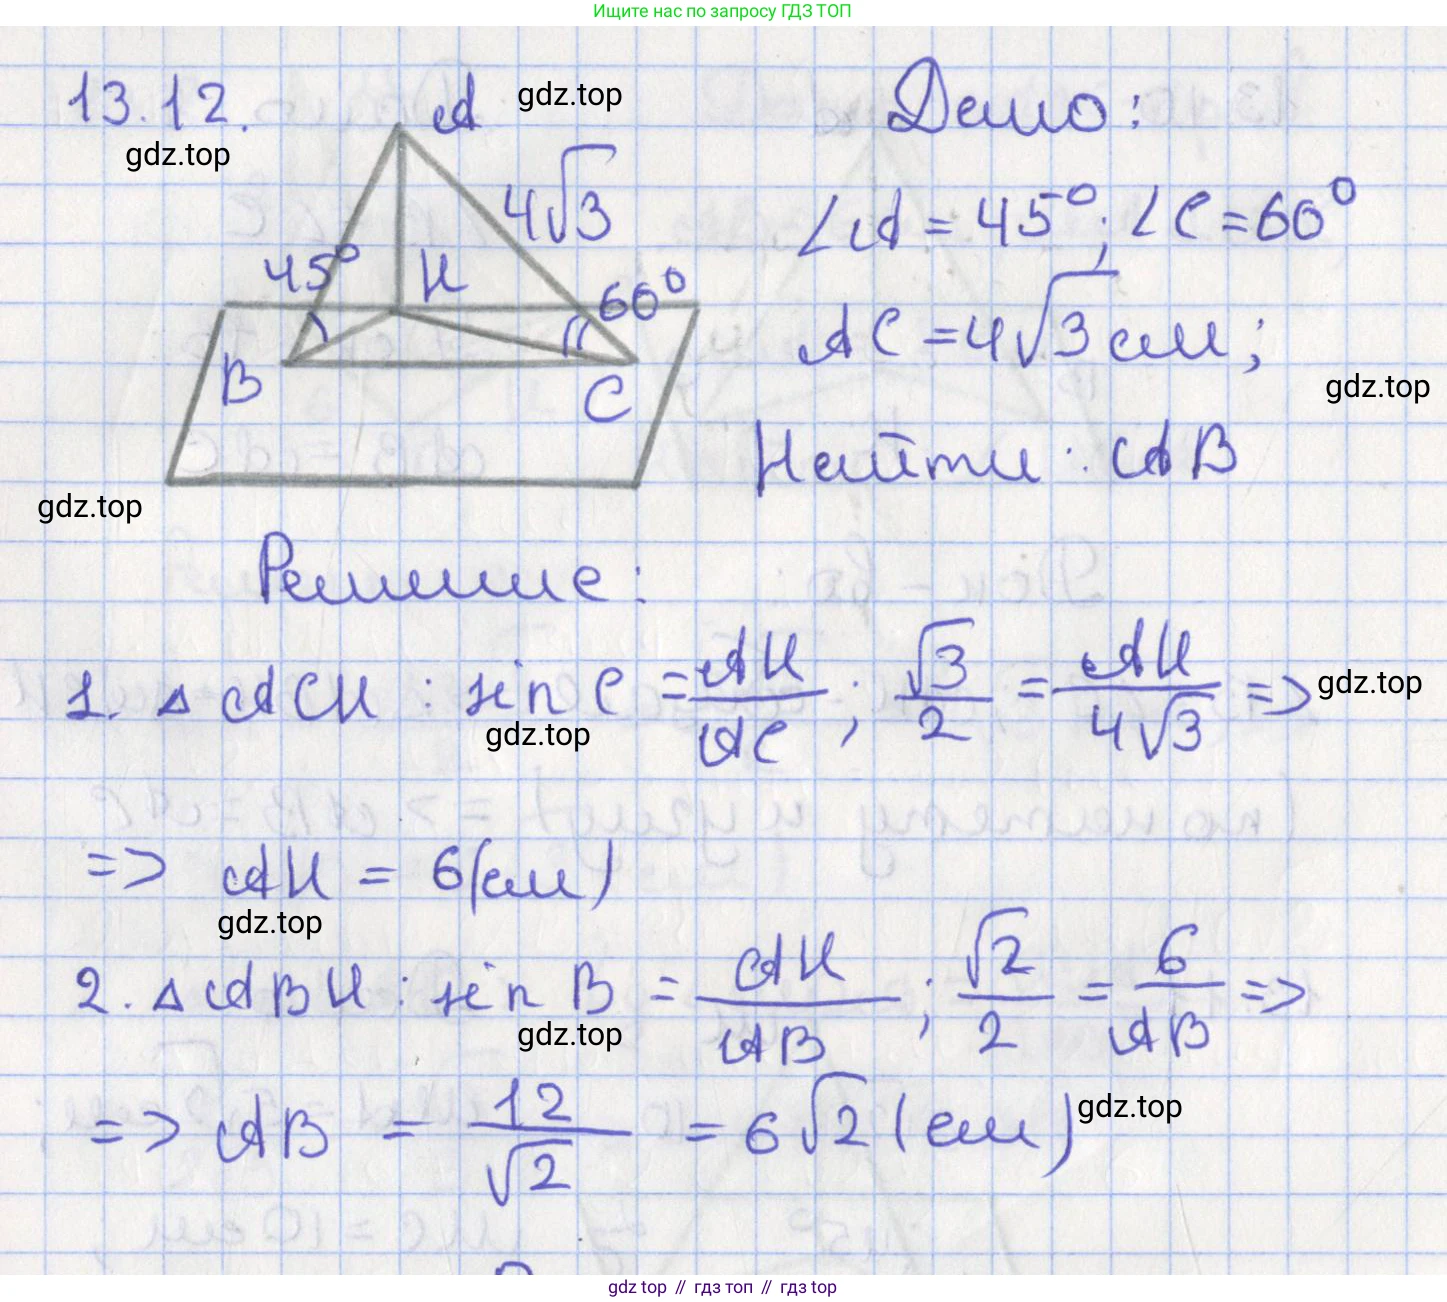 Ищите нас по запросу ГДЗ ТОП
13.12.
gdz.top
A
gdz.top
4√3
45°
H
60°
B
C
gdz.top
Дано:
∠A = 45°; ∠C = 60°
AC = 4√3 см;
gdz.top
Найти: AB
Решение:
1. △ ACH : sin C = AH/AC ; √3/2 = AH/4√3 =>
gdz.top
gdz.top
=> AH = 6(см)
gdz.top
2. △ ABH : sin B = AH/AB ; √2/2 = 6/AB =>
gdz.top
=> AB = 12/√2 = 6√2 (см)
gdz.top
gdz top // гдз топ // гдз top